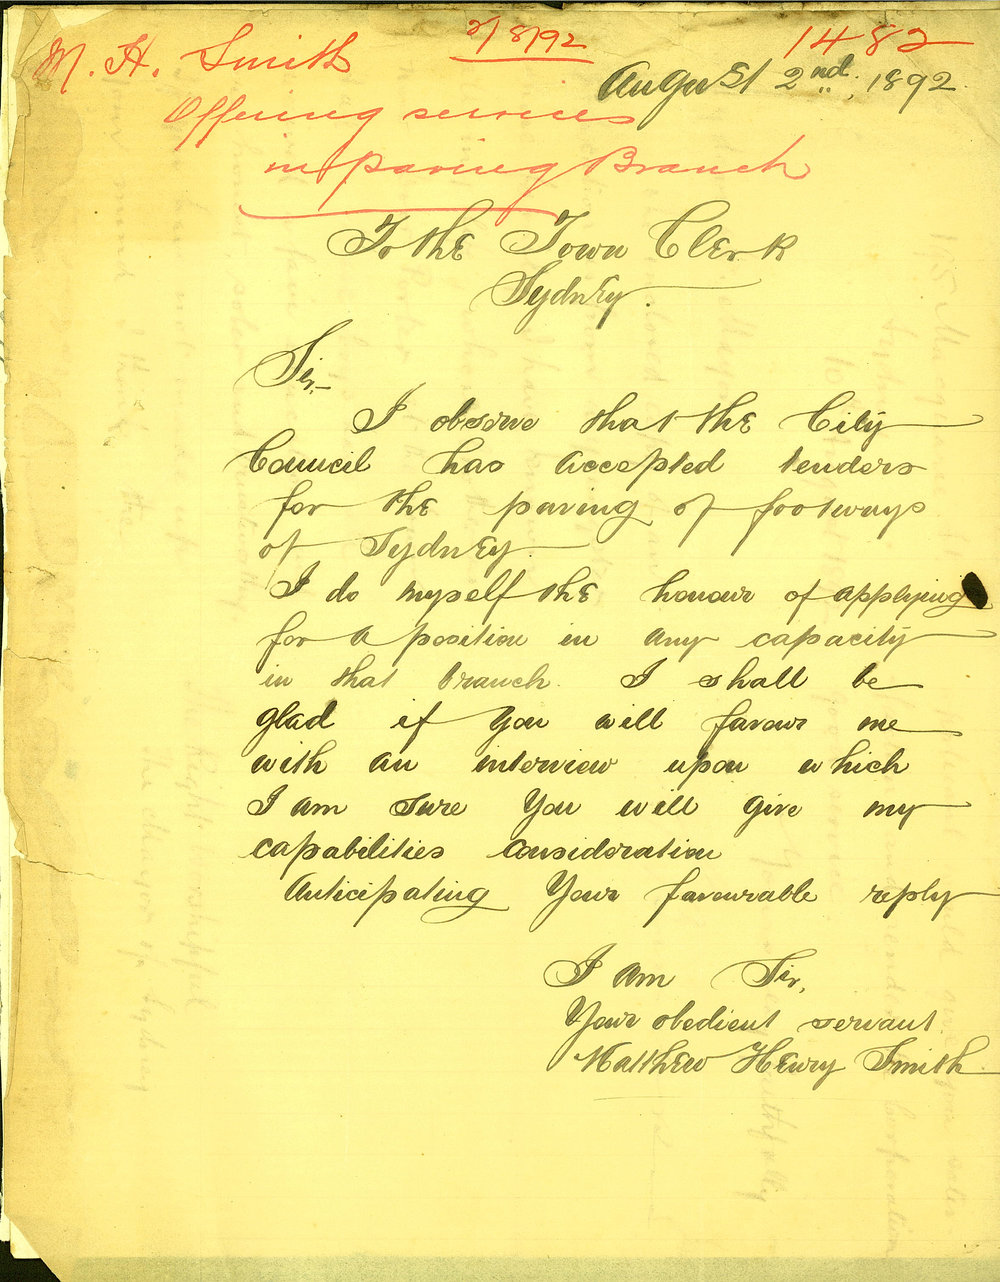 M. H. Smith
2/8/92
1482
August 2nd, 1892.
Offering services
in paving Branch
To the Town Clerk
Sydney.
Sir,
I observe that the City
Council has accepted tenders
for the paving of footways
of Sydney
I do myself the honour of applying
for a position in any capacity
in that branch. I shall be
glad if you will favour me
with an interview upon which
I am sure you will give my
capabilities consideration
Anticipating Your favourable reply
I am Sir,
Your obedient servant.
Matthew Henry Smith